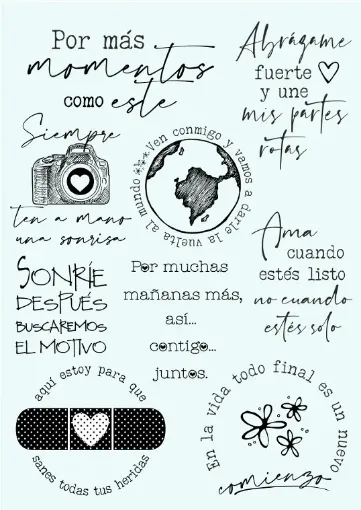 Por más
momentos
como este
Abrázame
fuerte
y une
mis partes
rotas
Siempre
ten a mano
una sonrisa
Ven conmigo y vamos a darle la vuelta al mundo
Ama
cuando
estés listo
no cuando
estés solo
SONRÍE
DESPUÉS
BUSCAREMOS
EL MOTIVO
Por muchas
mañanas más,
así...
contigo...
juntos.
aquí estoy para que
sanes todas tus heridas
En la vida todo final es un nuevo
comienzo